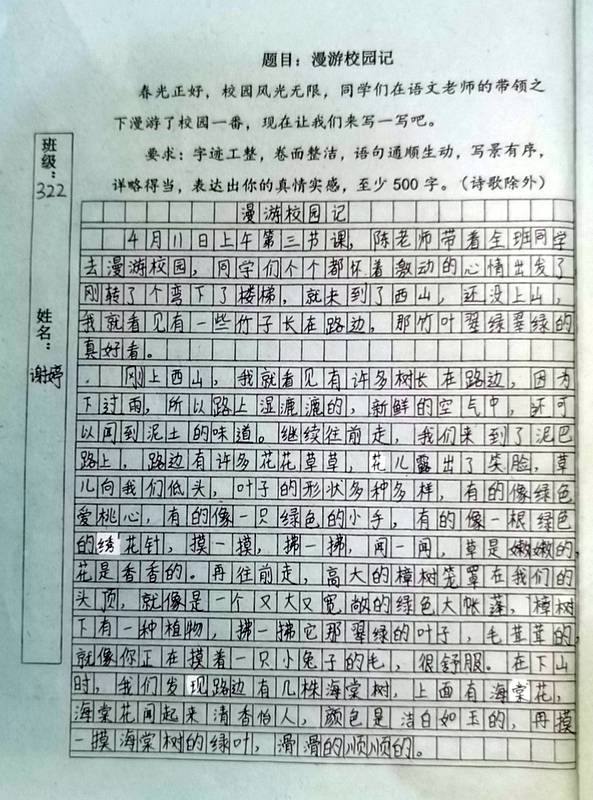 题目：漫游校园记
春光正好，校园风光无限，同学们在语文老师的带领之
下漫游了校园一番，现在让我们来写一写吧。
要求：字迹工整，卷面整洁，语句通顺生动，写景有序，
详略得当，表达出你的真情实感，至少500字。（诗歌除外）
班级：
322
姓名：
谢婷
漫游校园记
4月11日上午第三节课，陈老师带着全班同学
去漫游校园，同学们个个都怀着激动的心情出发了，
刚转了个弯下了楼梯，就来到了西山，还没上山，
我就看见有一些竹子长在路边，那竹叶翠绿翠绿的
真好看。
刚上西山，我就看见有许多树长在路边，因为
下过雨，所以路上湿漉漉的，新鲜的空气中，还可
以闻到泥土的味道。继续往前走，我们来到了泥巴
路上，路边有许多花花草草，花儿露出了笑脸，草
儿向我们低头，叶子的形状多种多样，有的像绿色
爱桃心，有的像一只绿色的小手，有的像一根绿色
的绣花针，摸一摸，拂一拂，闻一闻，草是嫩嫩的，
花是香香的。再往前走，高大的樟树笼罩在我们的
头顶，就像是一个又大又宽敞的绿色大帐蓬，樟树
下有一种植物，拂一拂它那翠绿的叶子，毛茸茸的，
就像你正在摸着一只小兔子的毛，很舒服。在下山
时，我们发现路边有几株海棠树，上面有海棠花，
海棠花闻起来清香怡人，颜色是洁白如玉的，再摸
一摸海棠树的绿叶，滑滑的顺顺的。